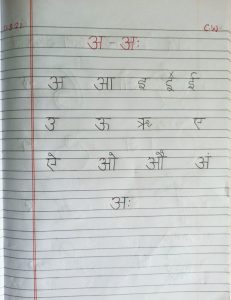 CW
अ - अः
अ आ इ ई ई
उ ऊ ऋ ए
ऐ ओ औ अं
अः